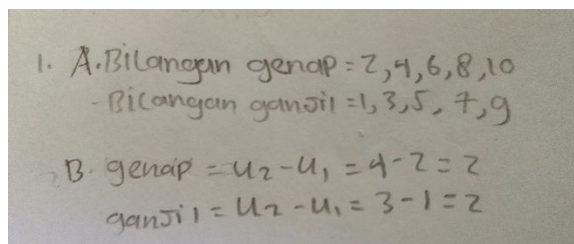 1. A. Bilangan genap = 2, 4, 6, 8, 10
- Bilangan ganjil = 1, 3, 5, 7, 9
B. genap = U₂ - U₁ = 4 - 2 = 2
ganjil = U₂ - U₁ = 3 - 1 = 2